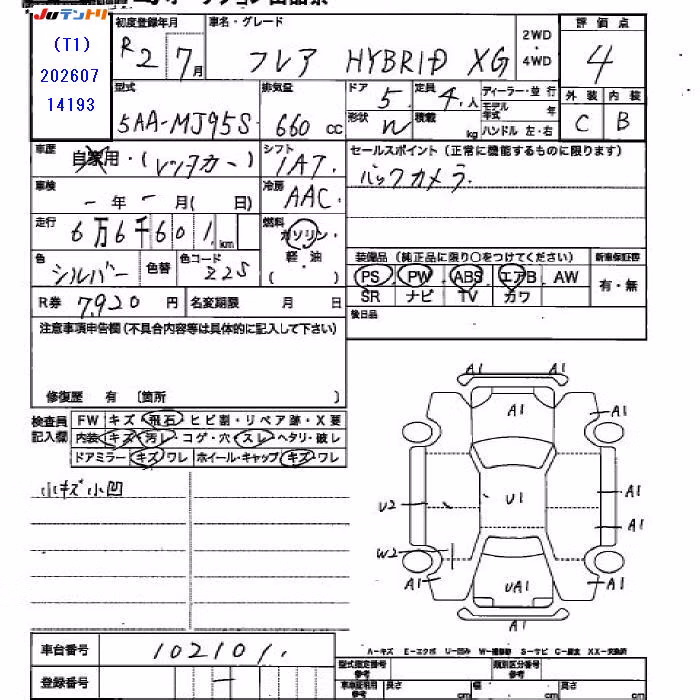 JUテントリ
(T1)
202607
14193
初度登録年月
R2 7月
車名・グレード
フレア HYBRID XG
2WD
・
4WD
評価点
4
型式
5AA-MJ95S
排気量
660 cc
ドア
5
定員
4人
形状
積載
kg
ディーラー・並行
モデル年式 年
ハンドル 左・右
外装 内装
C B
車歴
自家用・(レンタカー)
シフト
IAT
セールスポイント (正常に機能するものに限ります)
バックカメラ
車検
- 年 - 月( 日)
冷房
AAC
走行
6万6千601 km
燃料
ガソリン・
軽・油
( )
色
シルバー
色替
色コード
Z2S
装備品 (純正品に限り○をつけてください)
新車保証書
PS PW ABS エアB AW
SR ナビ TV カワ
有・無
R券 7,920 円
名変期限 月 日
後日品
注意事項申告欄(不具合内容等は具体的に記入して下さい)
修復歴 有 〔箇所 〕
検査員
記入欄
FW キズ・飛石・ヒビ割・リペア跡・X要
内装 キズ・汚レ・コゲ・穴・スレ・ヘタリ・破レ
ドアミラー キズ・ワレ ホイール・キャップ キズ・ワレ
小キズ小凹
A1 A1
A1 A1
U2 U1 A1
A1
W2
A1 UA1 A1
車台番号
102101
登録番号
-
A-キズ E-エクボ U-凹み W-補修跡 S-サビ C-腐食 XX-交換済
型式指定番号
参考
類別区分番号
参考
車検証寸用
参考
長さ cm
幅 cm
高さ cm